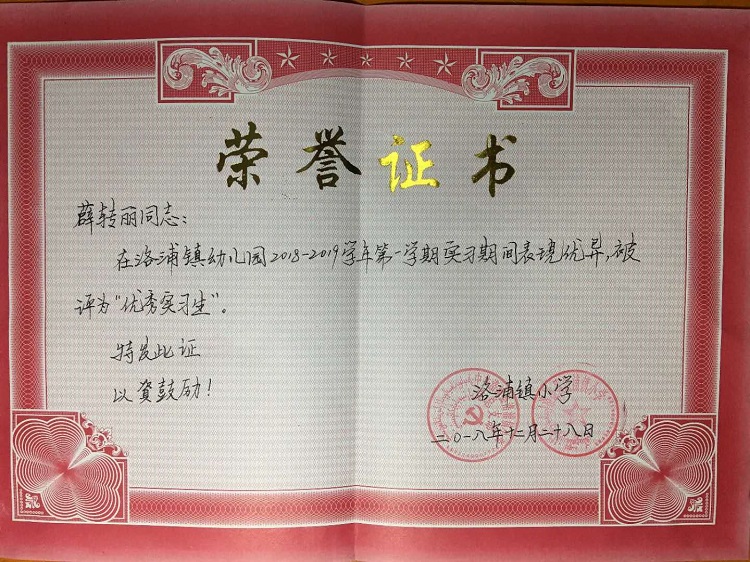 荣誉证书
薛转丽同志：
在洛浦镇幼儿园2018-2019学年第一学期实习期间表现优异，被
评为“优秀实习生”。
特发此证
以资鼓励！
洛浦镇小学
二〇一八年十二月二十八日